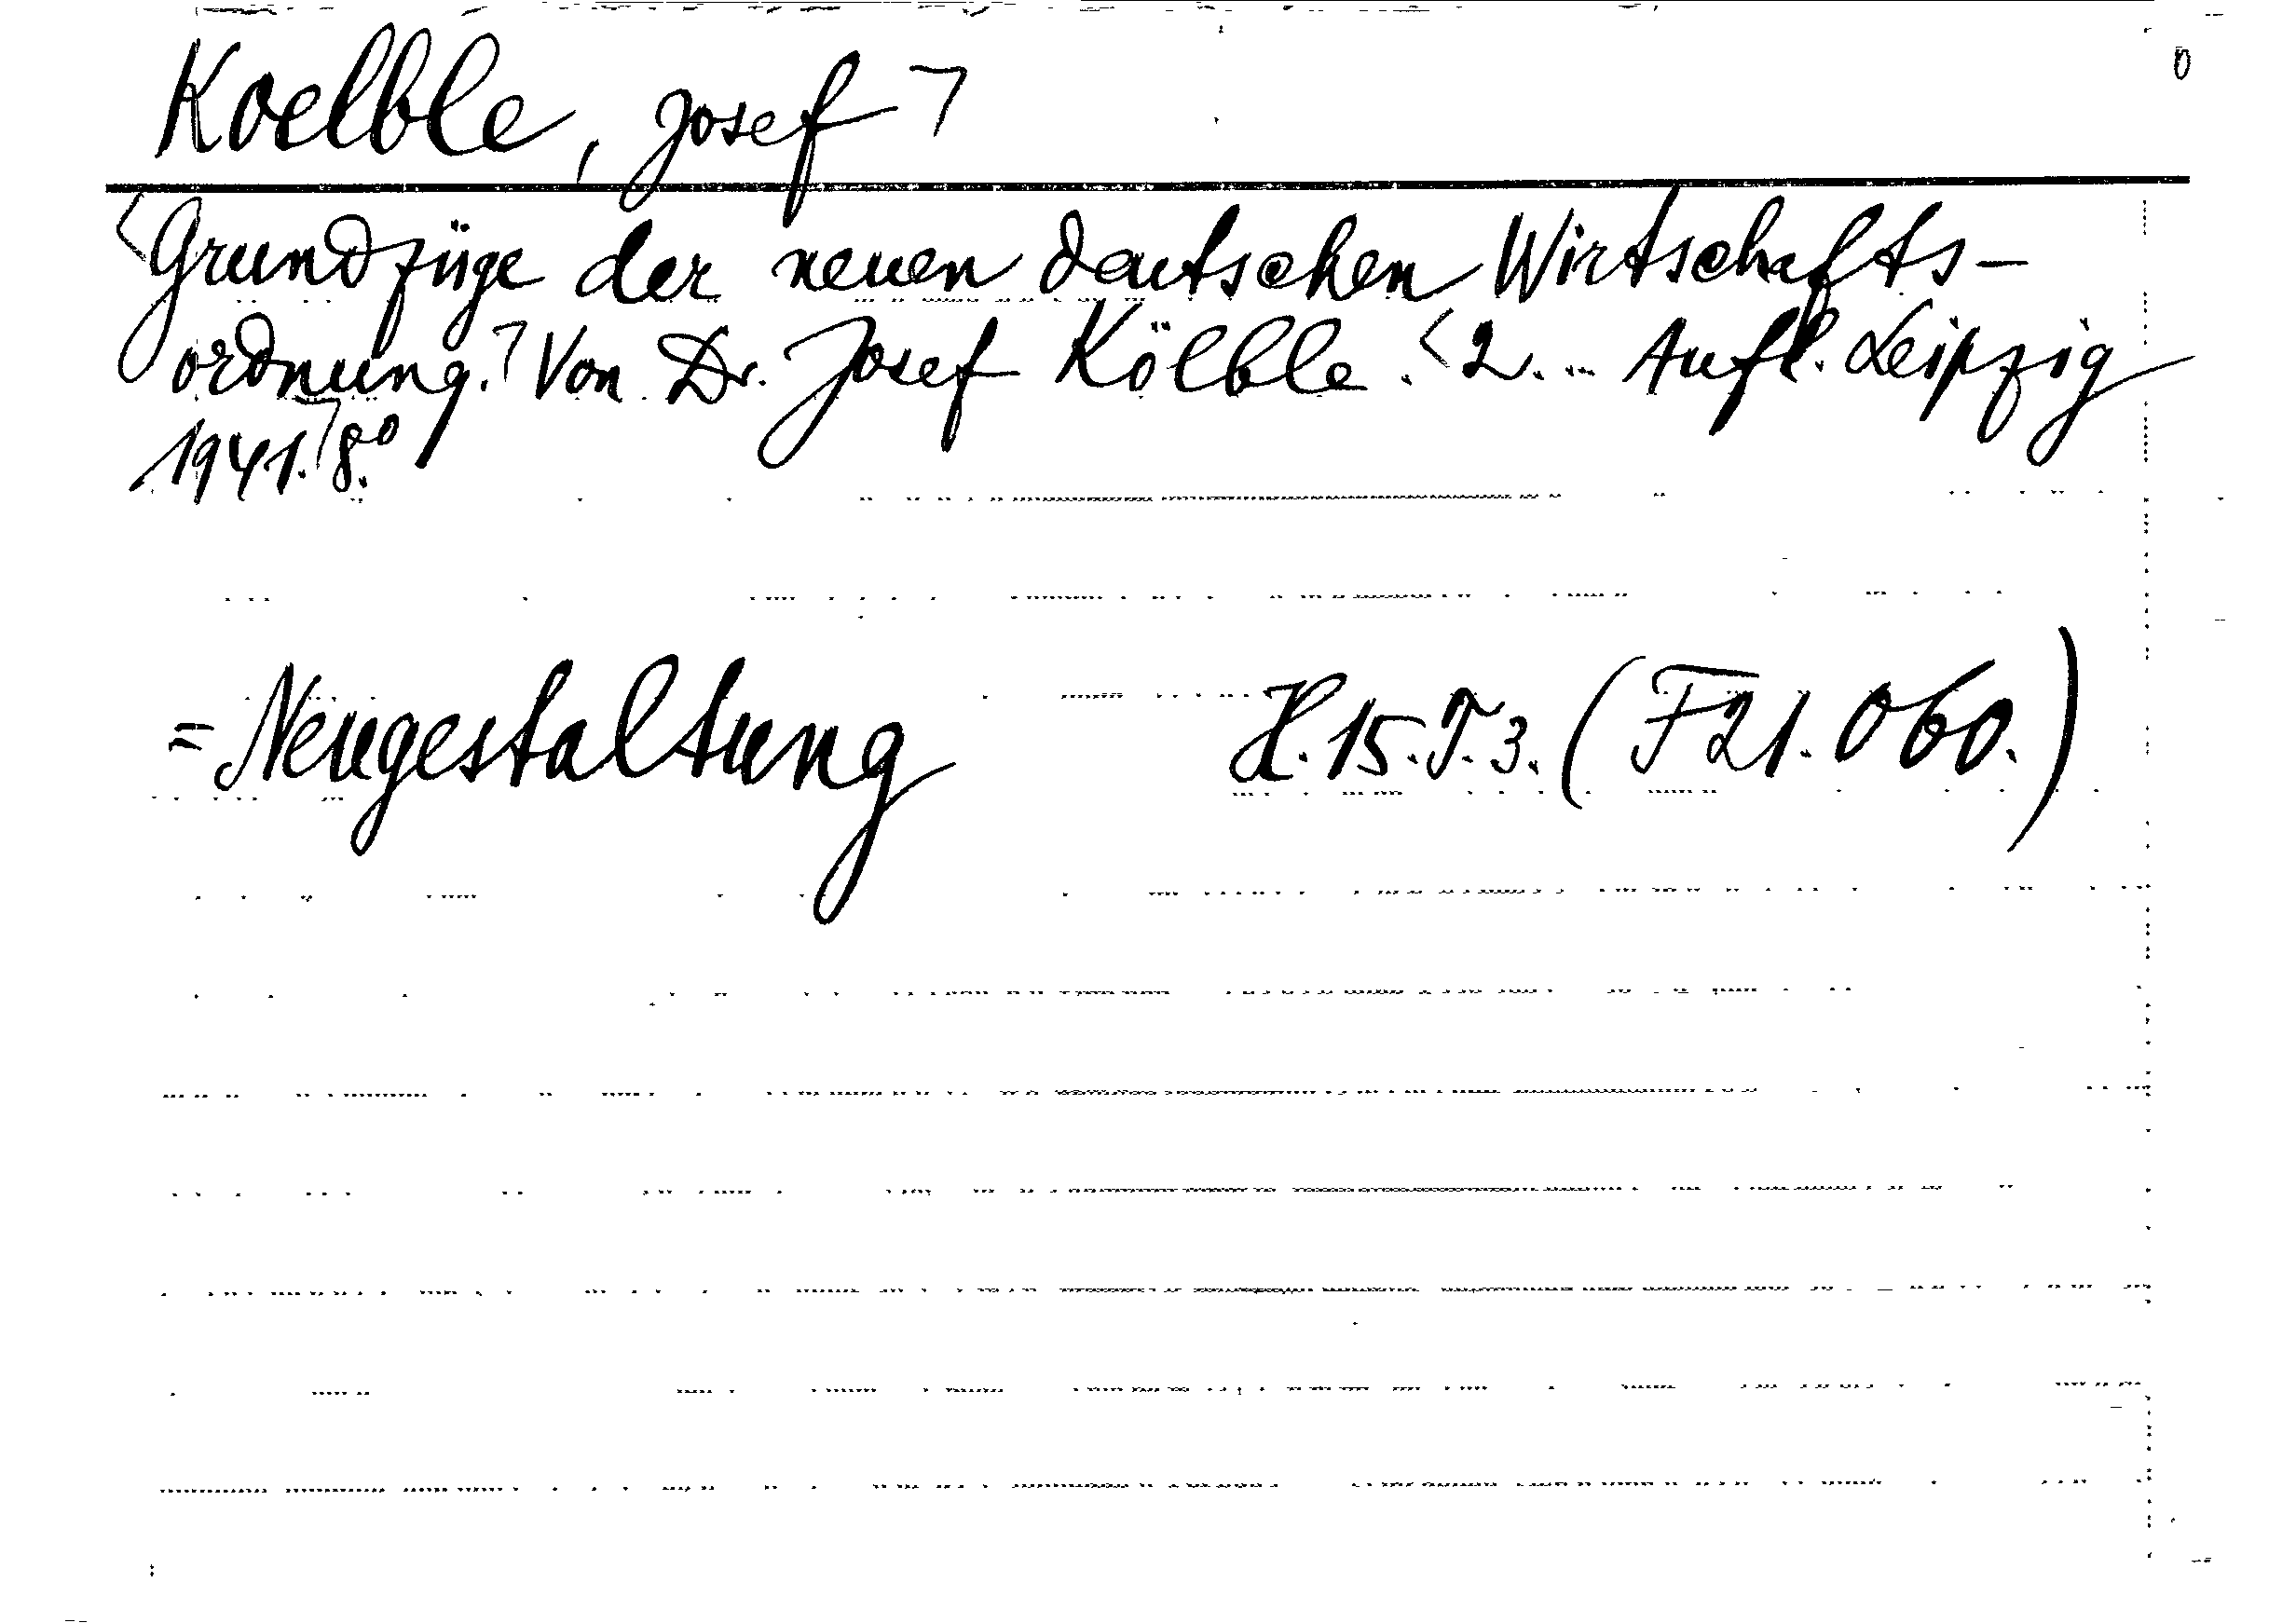 Koelble, Josef ⌉
0
<Grundzüge der neuen deutschen Wirtschafts-
ordnung.⌉ Von Dr. Josef Kölble. <2... Aufl. Leipzig
1941.⌉ 8.º
= Neugestaltung H.15.T.3. (F21.060.)